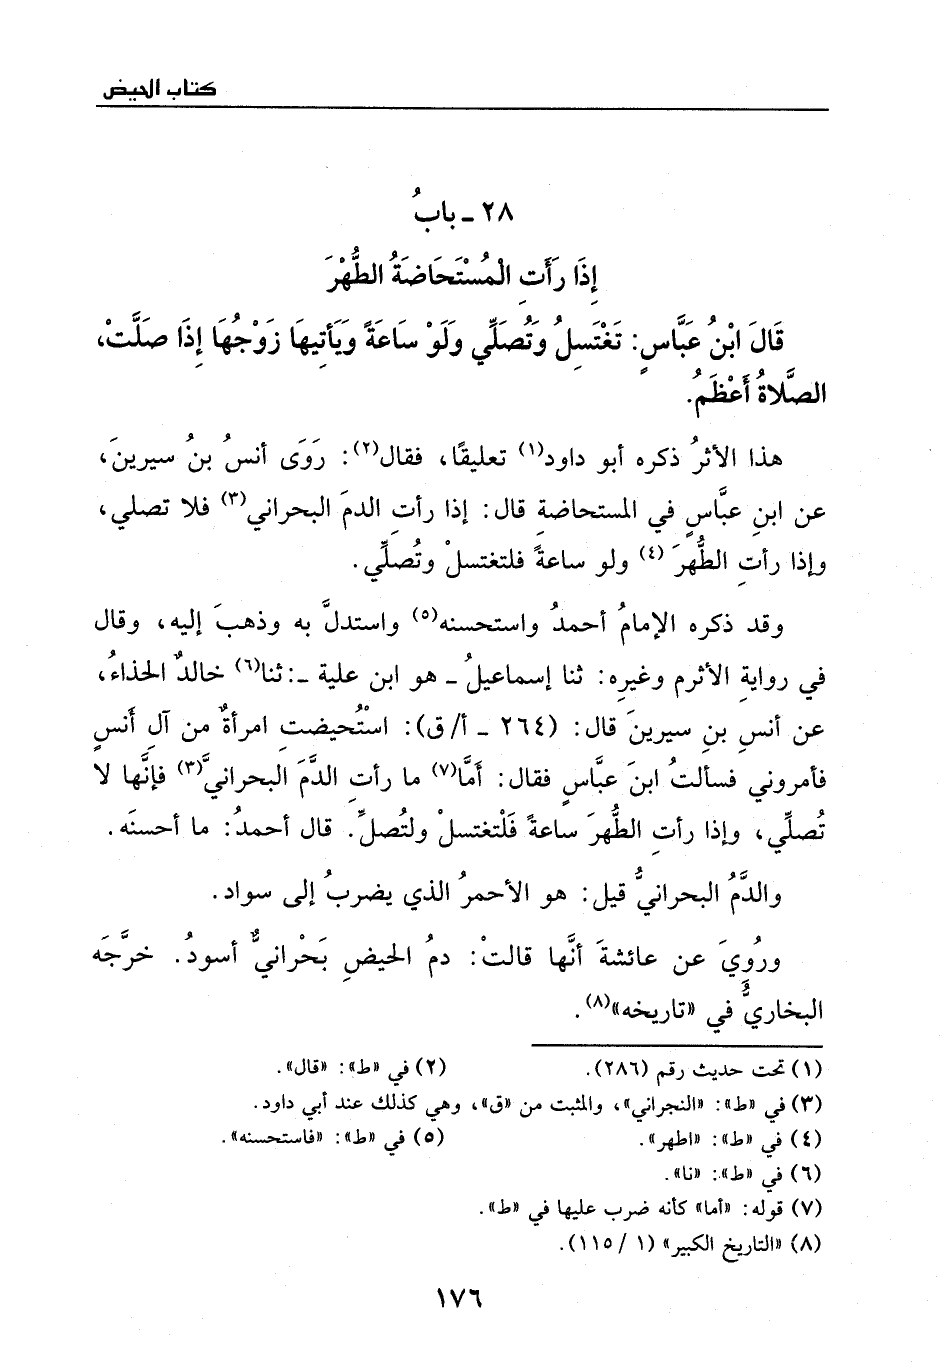 كتاب الحيض
٢٨ ـ بابُ
إِذَا رَأَتِ الْمُسْتَحَاضَةُ الطُّهْرَ
قَالَ ابْنُ عَبَّاسٍ: تَغْتَسِلُ وَتُصَلِّي وَلَوْ سَاعَةً وَيَأتِيهَا زَوْجُهَا إِذَا صَلَّتْ،
الصَّلاةُ أَعْظَمُ.
هذا الأثرُ ذكره أبو داود(١) تعليقًا، فقال(٢): رَوَى أنسُ بنُ سيرينَ،
عن ابنِ عبَّاسٍ في المستحاضةِ قال: إذا رأتِ الدمَ البحراني(٣) فلا تصلي،
وإذا رأتِ الطُّهرَ (٤) ولو ساعةً فلتغتسلْ وتُصلِّي.
وقد ذكره الإمامُ أحمدُ واستحسنه(٥) واستدلَّ به وذهبَ إليه، وقال
في روايةِ الأثرم وغيرِه: ثنا إسماعيلُ ـ هو ابن علية ـ: ثنا(٦) خالدٌ الحذاءُ،
عن أنسِ بنِ سيرينَ قال: (٢٦٤ ـ أ/ ق): اسْتُحيضتِ امرأةٌ من آلِ أَنسٍ
فأمروني فسألتُ ابنَ عبَّاسٍ فقال: أَمَّا(٧) ما رأتِ الدَّمَ البحرانيَّ(٣) فإنَّها لا
تُصلِّي، وإذا رأتِ الطُّهرَ ساعةً فَلْتغتسلْ ولتُصلِّ. قال أحمدُ: ما أحسنَه.
والدَّمُ البحرانيُّ قيل: هو الأحمرُ الذي يضربُ إلى سواد.
ورُويَ عن عائشةَ أنَّها قالتْ: دمُ الحيضِ بَحْرانيٌّ أسودُ. خرَّجَه
البخاريُّ في «تاريخه»(٨).
(١) تحت حديث رقم (٢٨٦).
(٢) في «ط»: «قال».
(٣) في «ط»: «النجراني»، والمثبت من «ق»، وهي كذلك عند أبي داود.
(٤) في «ط»: «اطهر».
(٥) في «ط»: «فاستحسنه».
(٦) في «ط»: «نا».
(٧) قوله: «أما» كأنه ضرب عليها في «ط».
(٨) «التاريخ الكبير» (١ / ١١٥).
١٧٦